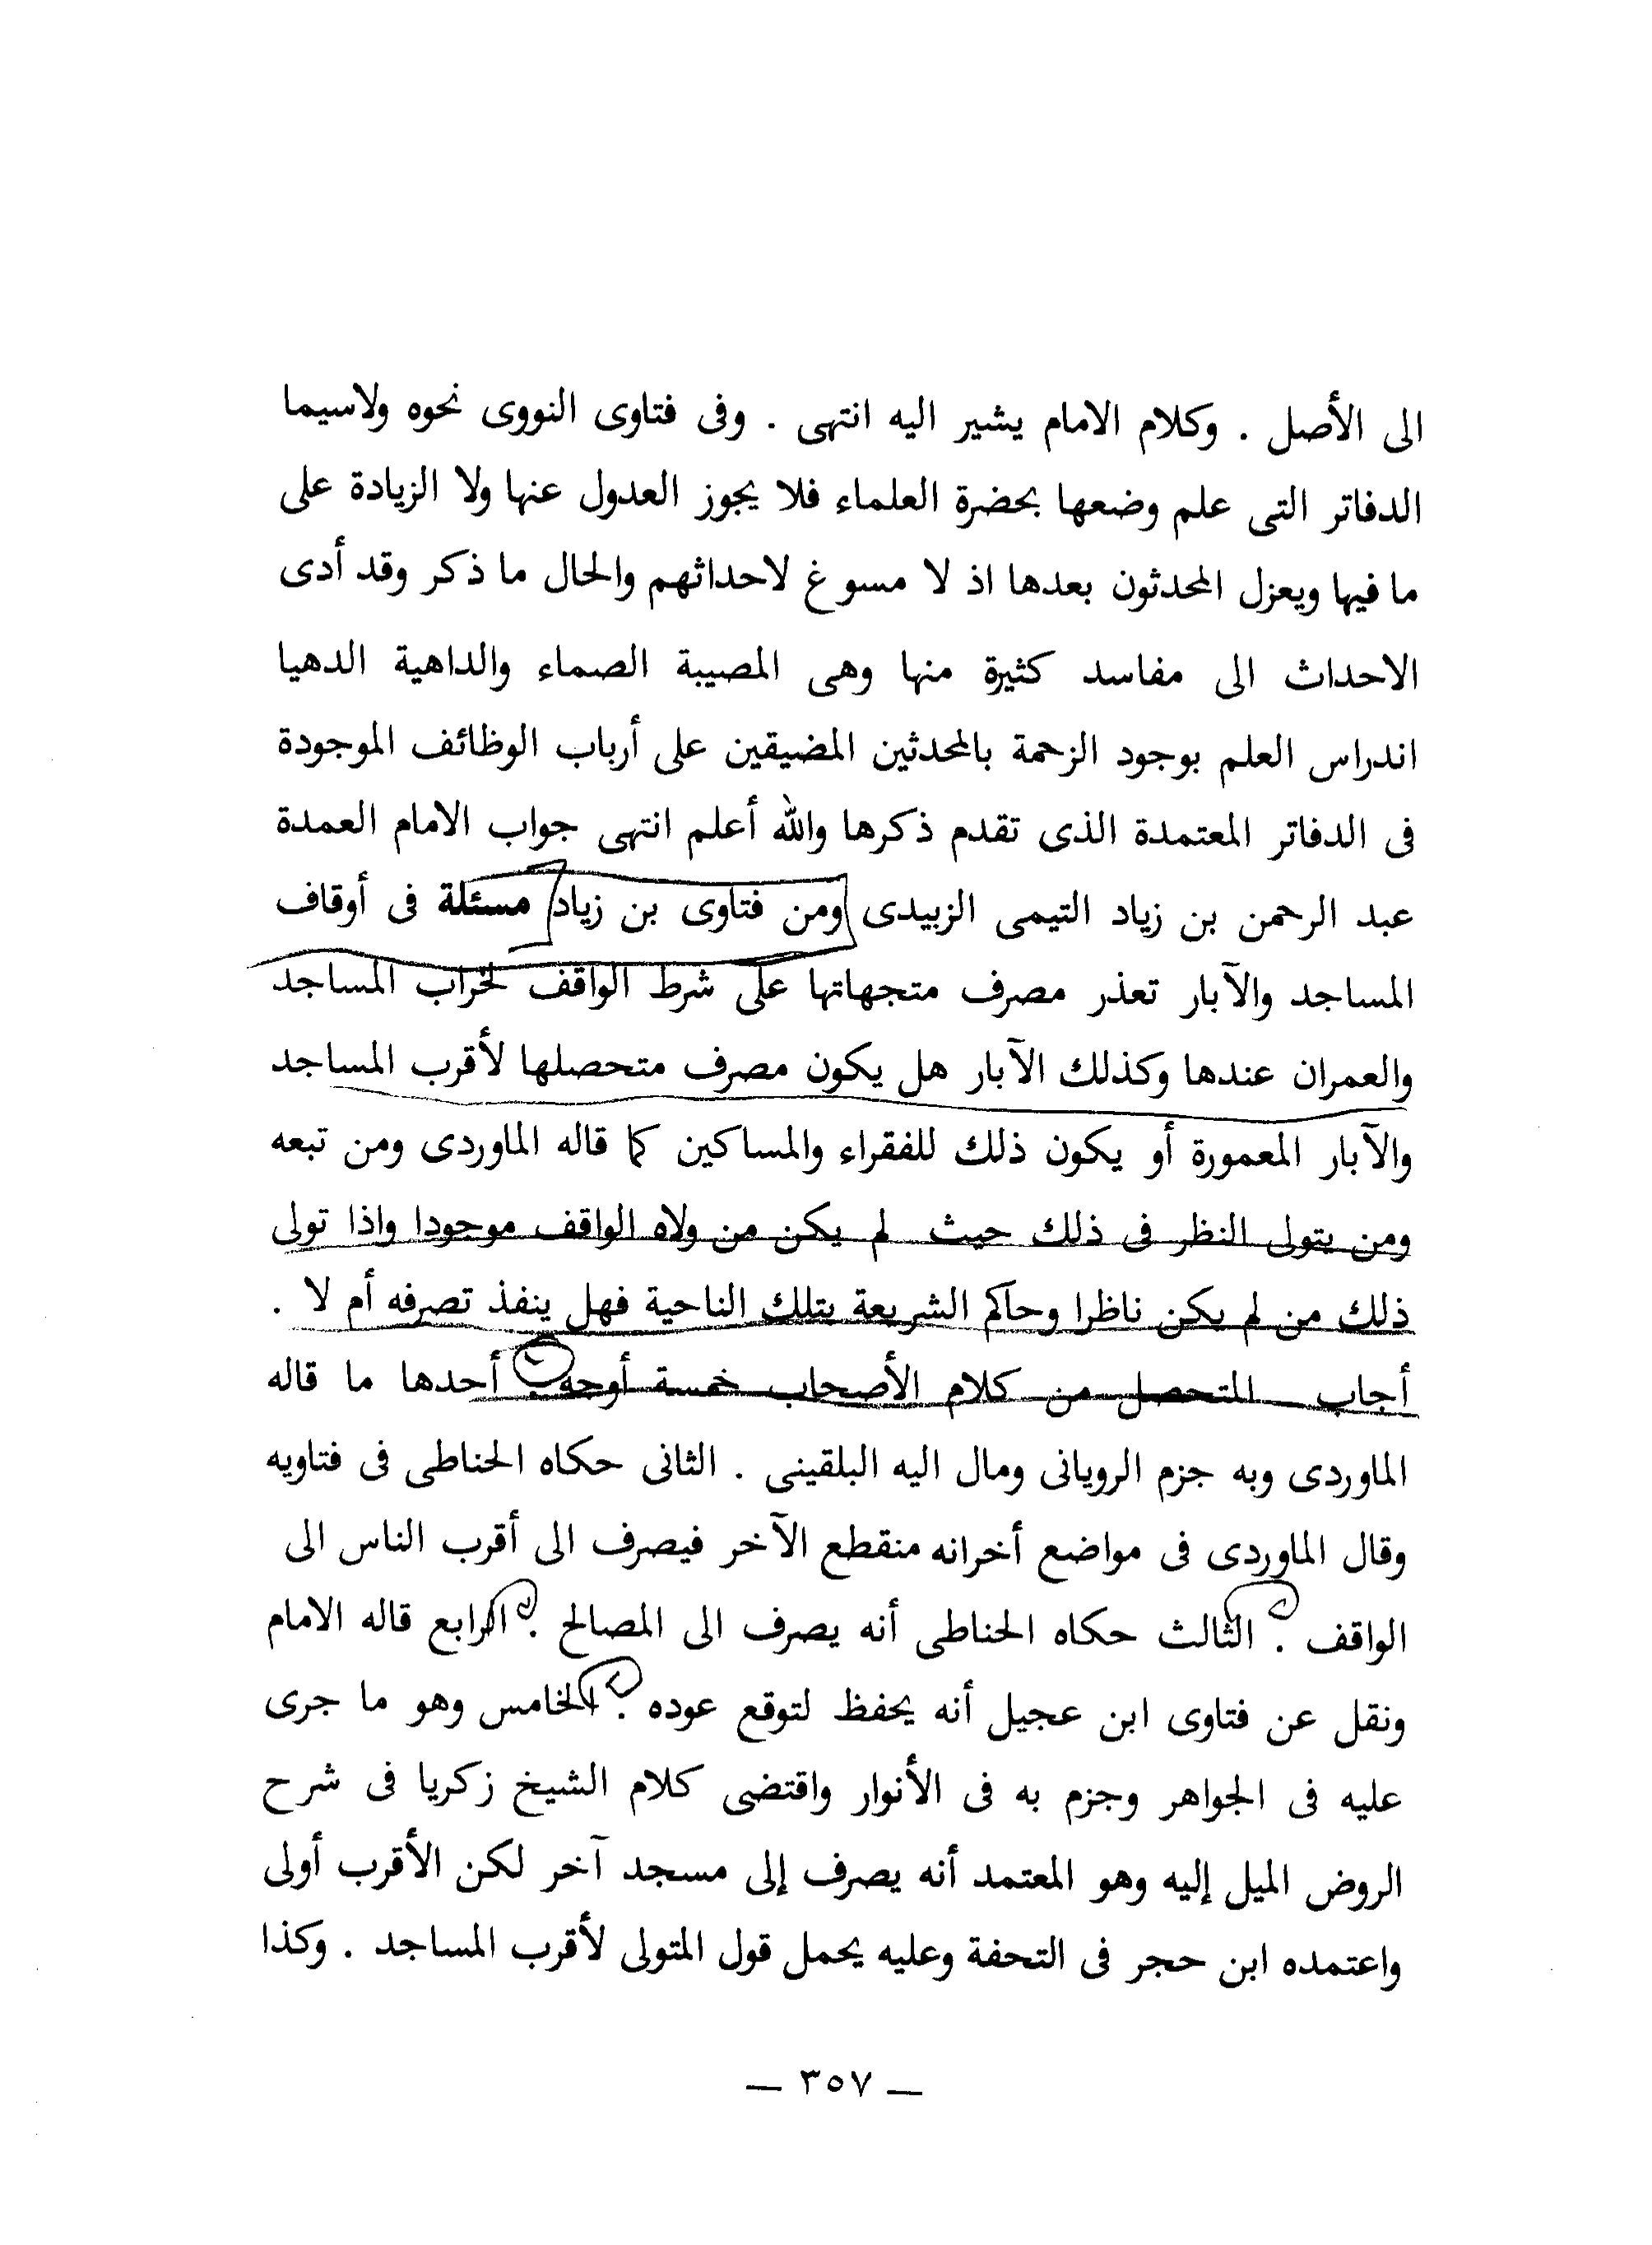 الى الأصل . وكلام الامام يشير اليه انتهى . وفى فتاوى النووى نحوه ولاسيما
الدفاتر التى علم وضعها بحضرة العلماء فلا يجوز العدول عنها ولا الزيادة على
ما فيها ويعزل المحدثون بعدها اذ لا مسوغ لاحداثهم والحال ما ذكر وقد أدى
الاحداث الى مفاسد كثيرة منها وهى المصيبة الصماء والداهية الدهيا
اندراس العلم بوجود الزحمة بالمحدثين المضيقين على أرباب الوظائف الموجودة
فى الدفاتر المعتمدة الذى تقدم ذكرها والله أعلم انتهى جواب الامام العمدة
عبد الرحمن بن زياد التيمى الزبيدى ومن فتاوى بن زياد مسئلة فى أوقاف
المساجد والآبار تعذر مصرف متجهاتها على شرط الواقف لخراب المساجد
والعمران عندها وكذلك الآبار هل يكون مصرف متحصلها لأقرب المساجد
والآبار المعمورة أو يكون ذلك للفقراء والمساكين كما قاله الماوردى ومن تبعه
ومن يتولى النظر فى ذلك حيث لم يكن من ولاه الواقف موجودا واذا تولى
ذلك من لم يكن ناظرا وحاكم الشريعة بتلك الناحية فهل ينفذ تصرفه أم لا .
أجاب المتحصل من كلام الأصحاب خمسة أوجه . أحدها ما قاله
الماوردى وبه جزم الرويانى ومال اليه البلقينى . الثانى حكاه الحناطى فى فتاويه
وقال الماوردى فى مواضع أخرانه منقطع الآخر فيصرف الى أقرب الناس الى
الواقف . الثالث حكاه الحناطى أنه يصرف الى المصالح . الرابع قاله الامام
ونقل عن فتاوى ابن عجيل أنه يحفظ لتوقع عوده . الخامس وهو ما جرى
عليه فى الجواهر وجزم به فى الأنوار واقتضى كلام الشيخ زكريا فى شرح
الروض الميل إليه وهو المعتمد أنه يصرف إلى مسجد آخر لكن الأقرب أولى
واعتمده ابن حجر فى التحفة وعليه يحمل قول المتولى لأقرب المساجد . وكذا
— ٣٥٧ —